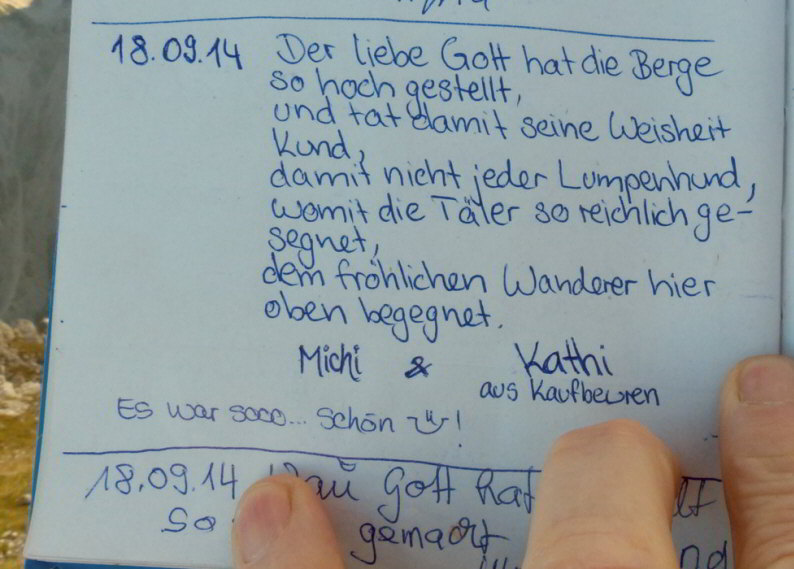 18.09.14 Der liebe Gott hat die Berge
so hoch gestellt,
und tat damit seine Weisheit
Kund,
damit nicht jeder Lumpenhund,
womit die Täler so reichlich ge-
segnet,
dem fröhlichen Wanderer hier
oben begegnet.
Michi & Kathi
aus Kaufbeuren
Es war sooo... schön!
18.09.14 Gott hat
So gemacht